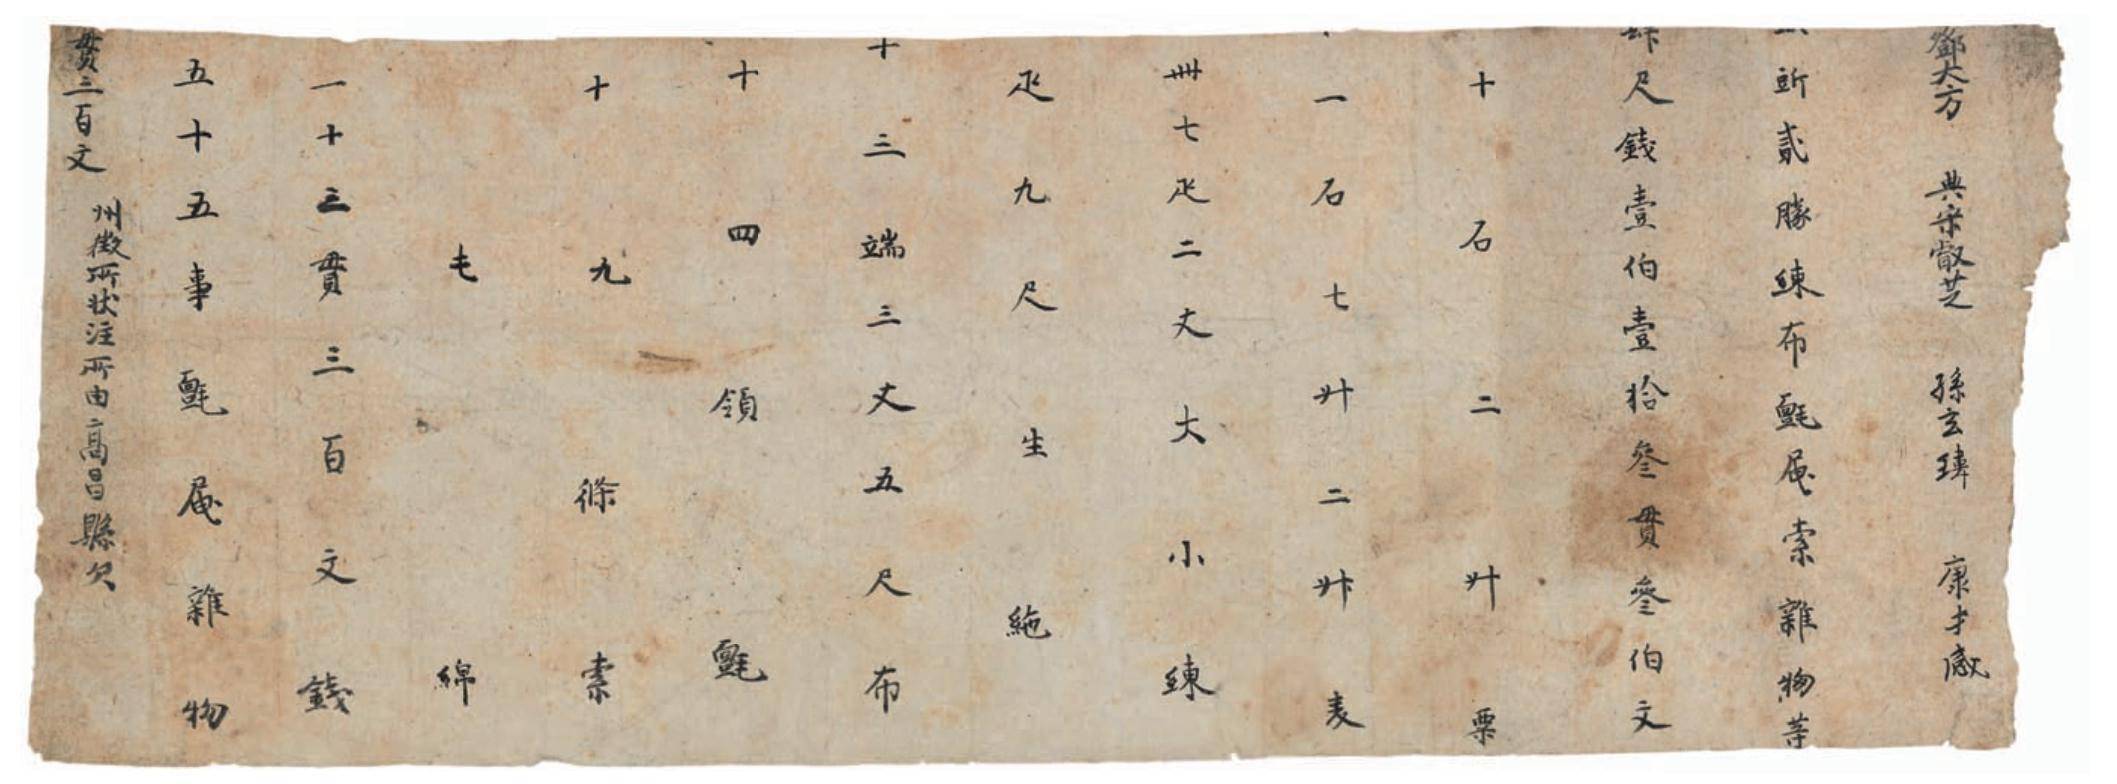 鄧大方 典宋叡芝 孫玄瑋 康才
㪷貳勝練布氈屜索雜物等
肆尺錢壹伯壹拾叁貫叁伯文
十石二斗粟
一石七斗二升麦
卌七疋二丈大小練
疋九尺生絁
十三端三丈五尺布
十四領氈
十九條索
屯綿
一十三貫三百文錢
五十五事氈屜雜物
貫三百文 州徵所狀注所由高昌縣欠